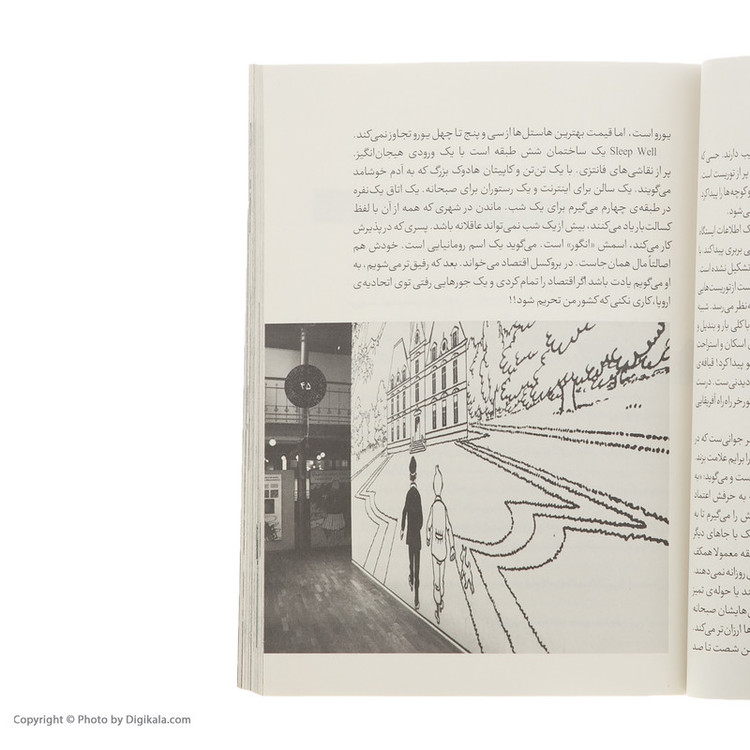 یورو است، اما قیمت بهترین هاستل‌ها از سی و پنج تا چهل یورو تجاوز نمی‌کند.
Sleep Well یک ساختمان شش طبقه است با یک ورودی هیجان‌انگیز.
پر از نقاشی‌های فانتزی. با یک تن‌تن و کاپیتان هادوک بزرگ که به آدم خوشامد
می‌گویند. یک سالن برای اینترنت و یک رستوران برای صبحانه. یک اتاق یک‌نفره
در طبقه‌ی چهارم می‌گیرم برای یک شب. ماندن در شهری که همه از آن با لفظ
کسالت‌بار یاد می‌کنند، بیش از یک شب نمی‌تواند عاقلانه باشد. پسری که در پذیرش
کار می‌کند، اسمش «انگور» است. می‌گوید یک اسم رومانیایی است. خودش هم
اصالتاً مال همان‌جاست. در بروکسل اقتصاد می‌خواند. بعد که رفیق‌تر می‌شویم، به
او می‌گویم یادت باشد اگر اقتصاد را تمام کردی و یک جورهایی رفتی توی اتحادیه‌ی
اروپا، کاری نکنی که کشور من تحریم شود!!
۴۵
یب دارند. حسی که
پر از توریست است
می‌شود.
ک اطلاعات ایستگاه
ی بربری پیدا کند. با
تشکیل نشده است
ست از توریست‌هایی
ه نظر می‌رسد. شبیه
با کلی بار و بندیل و
ی اسکان و استراحت
و پیدا کرد! قیافه‌ی
دیدنی ست. درست
ورخر راه راه آفریقایی
ر جوانی‌ست که در
را برایم علامت بزند
ست و می‌گوید: «به
به حرفش اعتماد
ش را می‌گیرم تا به
ک با جاهای دیگر
قه معمولا همکف
ی روزانه نمی‌دهند.
ند یا حوله‌ی تمیز
ی‌هایشان صبحانه
ها ارزان‌تر می‌کند.
ن شصت تا صد
Copyright © Photo by Digikala.com